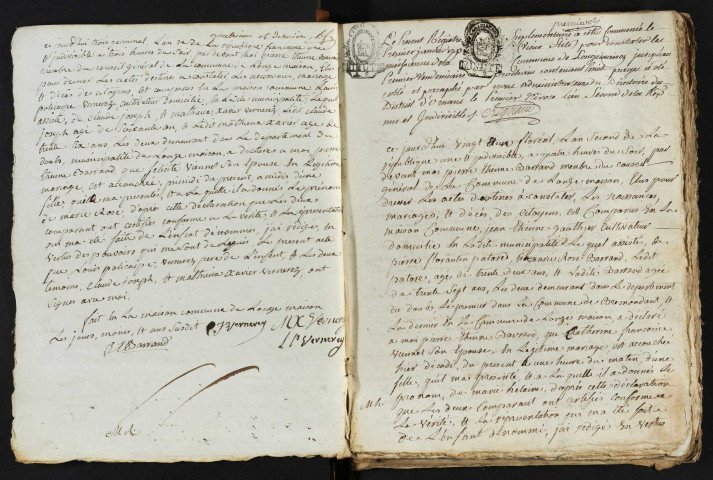 quatrieme et dernier
ce jourd'hui trois germinal l'an 2e de La republique francaise une
et jndivisible a trois heures du soir, par devant moi pierre Etienne Barrand
membre du conseil general de La commune de Longe maison, Elu
pour dresser Les actes destines a constater Les naissances, mariages
et deces des citoyens, est comparus En La maison commune Louis
policarpe Vernerey cultivateur domicilie, En La dite municipalite Lequel
assiste, de claude joseph, et mathieux xavier vernerey Ledit claude
joseph age de soixante an et Ledit mathieux xavier age de
trente six ans, Les deux demeurant dans Le departement du
doubs, municipalite de Longe maison, a declare a moi pierre
Etienne Barrand que felicite Vunnet Son Epouse En Legitime
mariage, est accouchée, du present, a midis d'une
fille, quil ma presentée, et a La quelle jl a donnés Le prenom
de marie Rose, d'apres cette declaration que Les deux
comparant ont certifies conforme a La verite, et La representation
qui ma eté faite de L'enfant denommee, j'ai redigé, En
vertus des pouvoirs qui me sont delegués Le present acte
que Louis policarpe, vernerey pere de L'enfant et Les deux
temoins, claude joseph, et mathieux xavier Vernerey, ont
signés avec moi.
fait En La maison commune de Longe maison
Les jours, mois, et ans susdit CJ Vernerey MX Vernerey
P E Barrand LP Vernerey
M.R
premier
Le present Registre Supplementaire a etés Commencé Le
premier janvier 1793 (Vieux Stile) pour constater Les
naissances de la Commune de Longemaison, jusqu'au
premier Vendemiaire prochain contenant page a été
coté et paraphé par nous administrateur du Directoire du
District d'Ornans le premier nivose Lan Second de la Repu
une et Jndivisible
ce jourd'hui Vingt un floréal, Lan second de La
république une et jndivisible, a quatre heures du Soir, par
devant moi pierre Etienne Barrand membre du conseil
général de La Commune de Longe maison, Elus pour
dresser Les actes destinés a Constater, Les naissances
mariages, et décès, des citoyens, est Comparus En La
maison Commune, jean Etienne gauthier Cultivateur
domicilié En Ladite municipalité Le quel assisté, de
pierre florantin patoré, et marie Rose Barrand, Ledit
patoré, agé de trente deux ans, et Ladite Barrand agée
de trente Sept ans, Les deux demeurant dans Le departement
du doubs Le premier dans La Commune de Bremondant, et
La dernier En La Commune de Longe maison a déclaré
a moi pierre Etienne Barrand, que Catherine francoise
Vunnet Son Epouse, En Legitime mariage est accouchée
hier décadi, du present a une heure du matin d'une
fille, quil ma presenté, et a La quelle il a donnés Le
prenom, de marie helaine, daprès cette déclaration
M.h. que Les deux Comparant ont certifiés conforme a
La Vérité, et La representation qui ma été faite
de L'Enfant denommé, jai redigé En Vertus